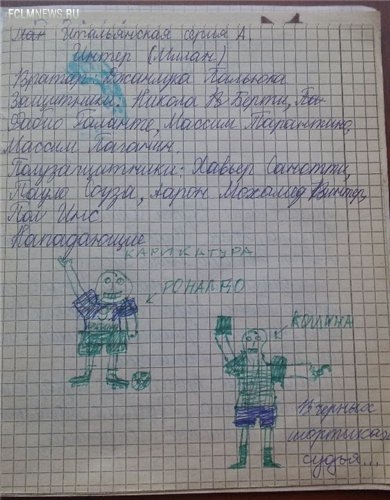 FCLMNEWS.RU
Итальянская серия А
Интер (Милан)
Вратарь: Джанлука Пальюка
Защитники: Никола Берти, Фа-
Фабио Галанте, Массим Тарантино,
Массим Паганин.
Полузащитники: Хавьер Санетти,
Пауло Соуза, Аарон Мохамед Винтер,
Пол Инс
Нападающие
КАРИКАТУРА
РОНАЛДО
КОЛЛИНА
В черных
шортиках
судья...